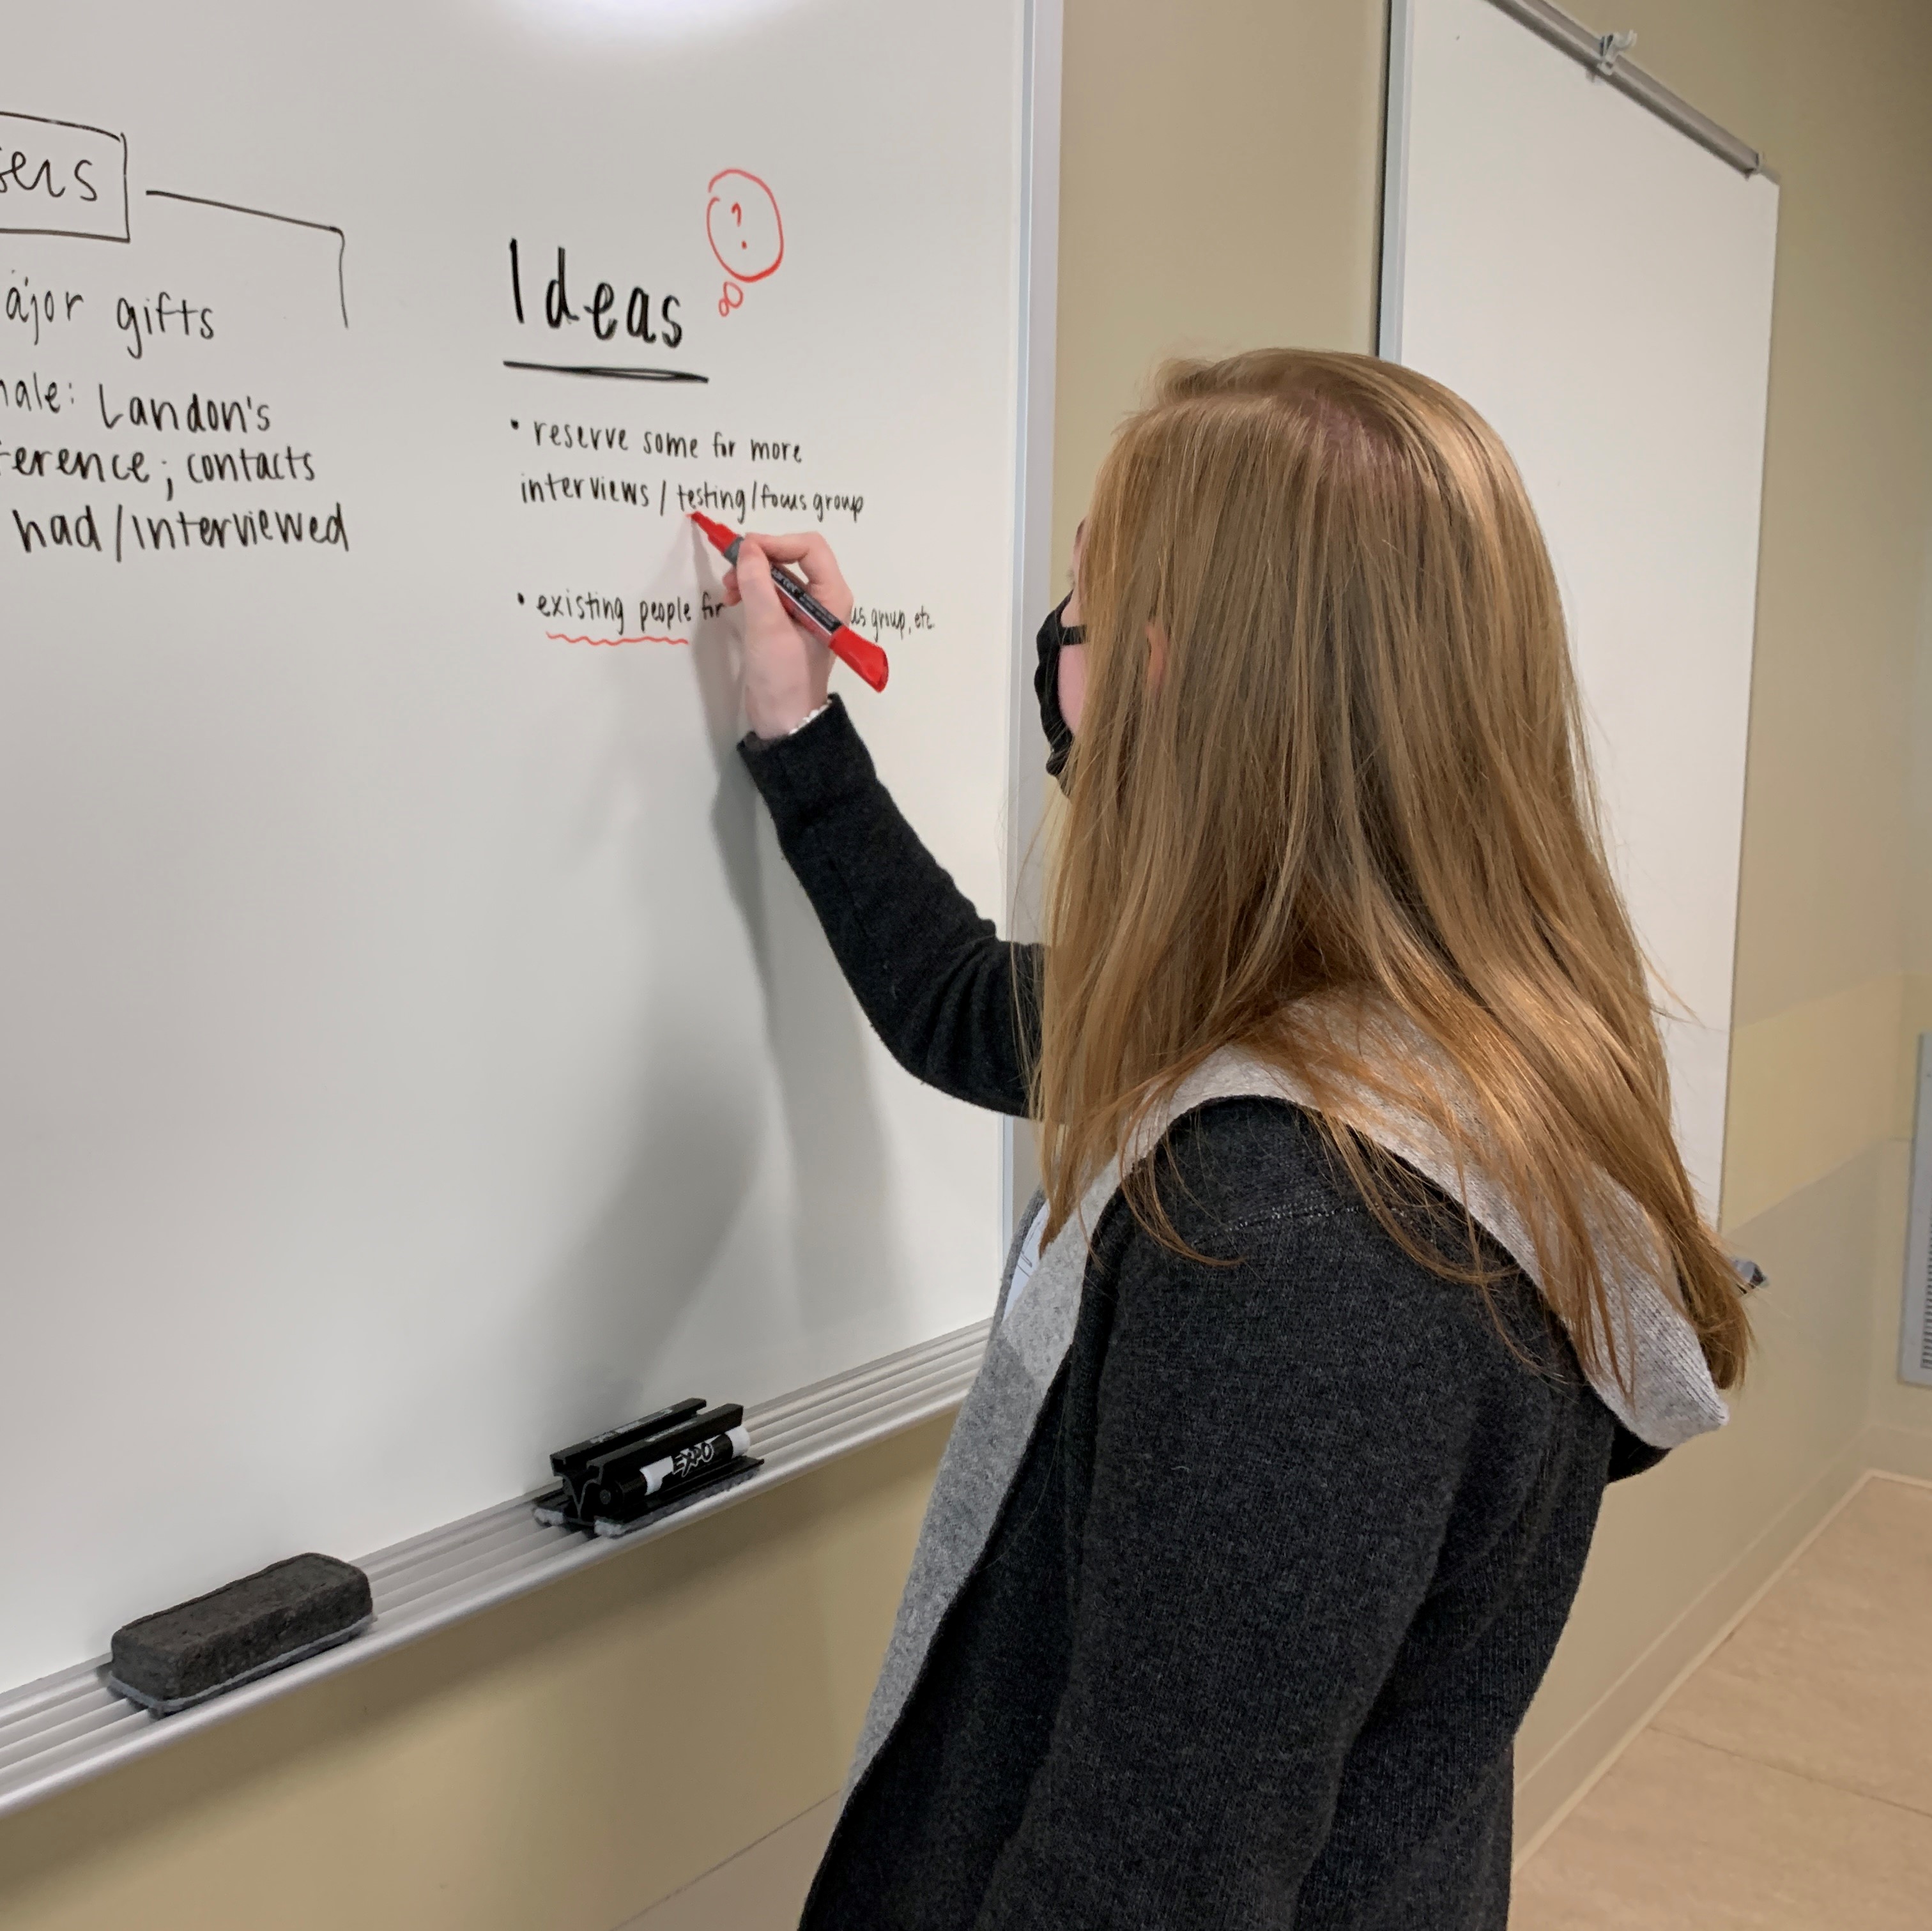 ajor gifts
Landon's
contacts
had/interviewed
?
Ideas
• reserve some for more
interviews / testing/focus group
• existing people for
group, etc.
EXPO